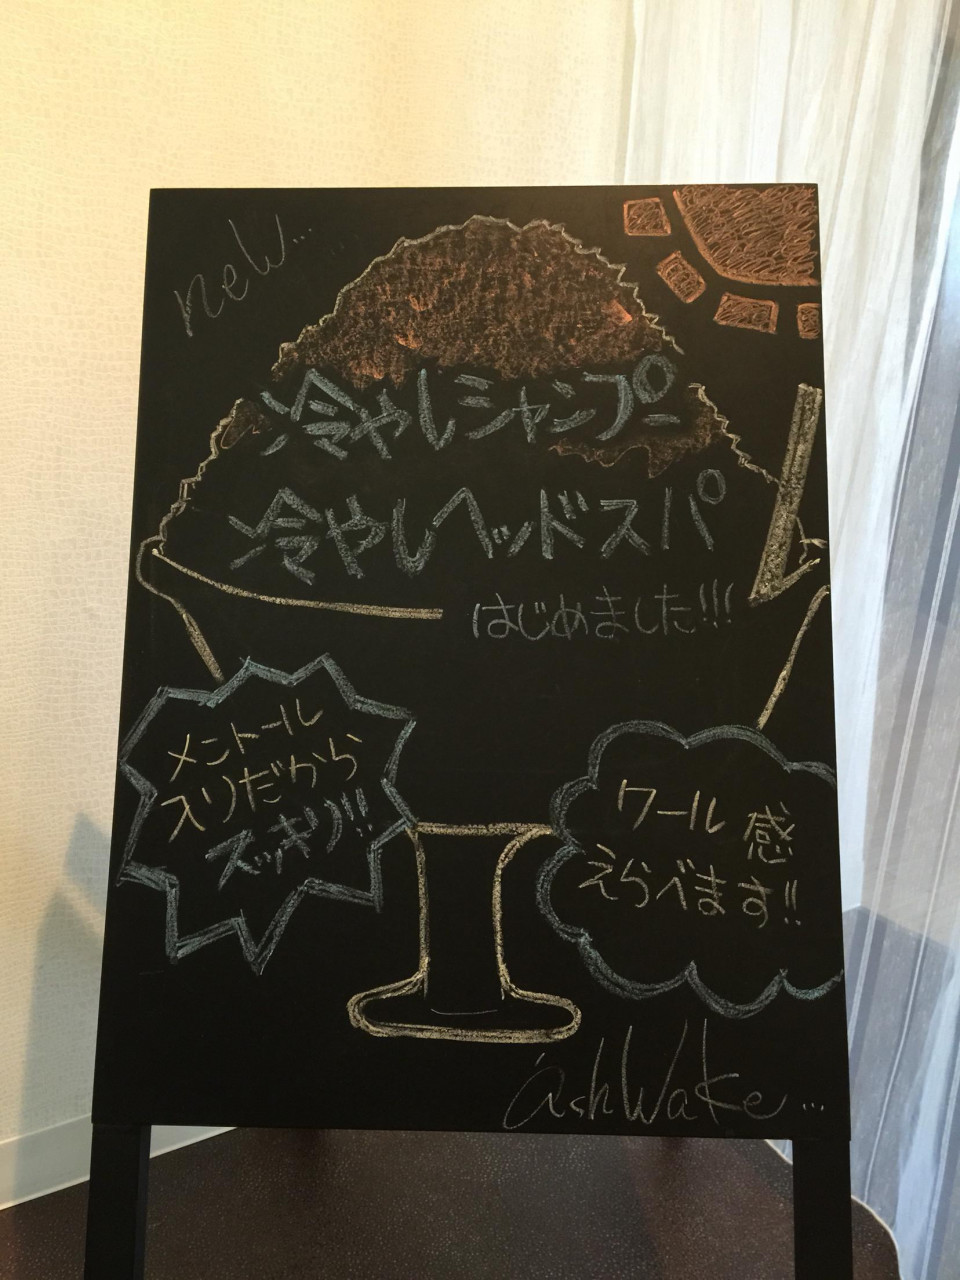 new...
冷やしシャンプー
冷やしヘッドスパ
はじめました!!!
メントール
入りだから
スッキリ!!
クール感
えらべます!!
ashWake...